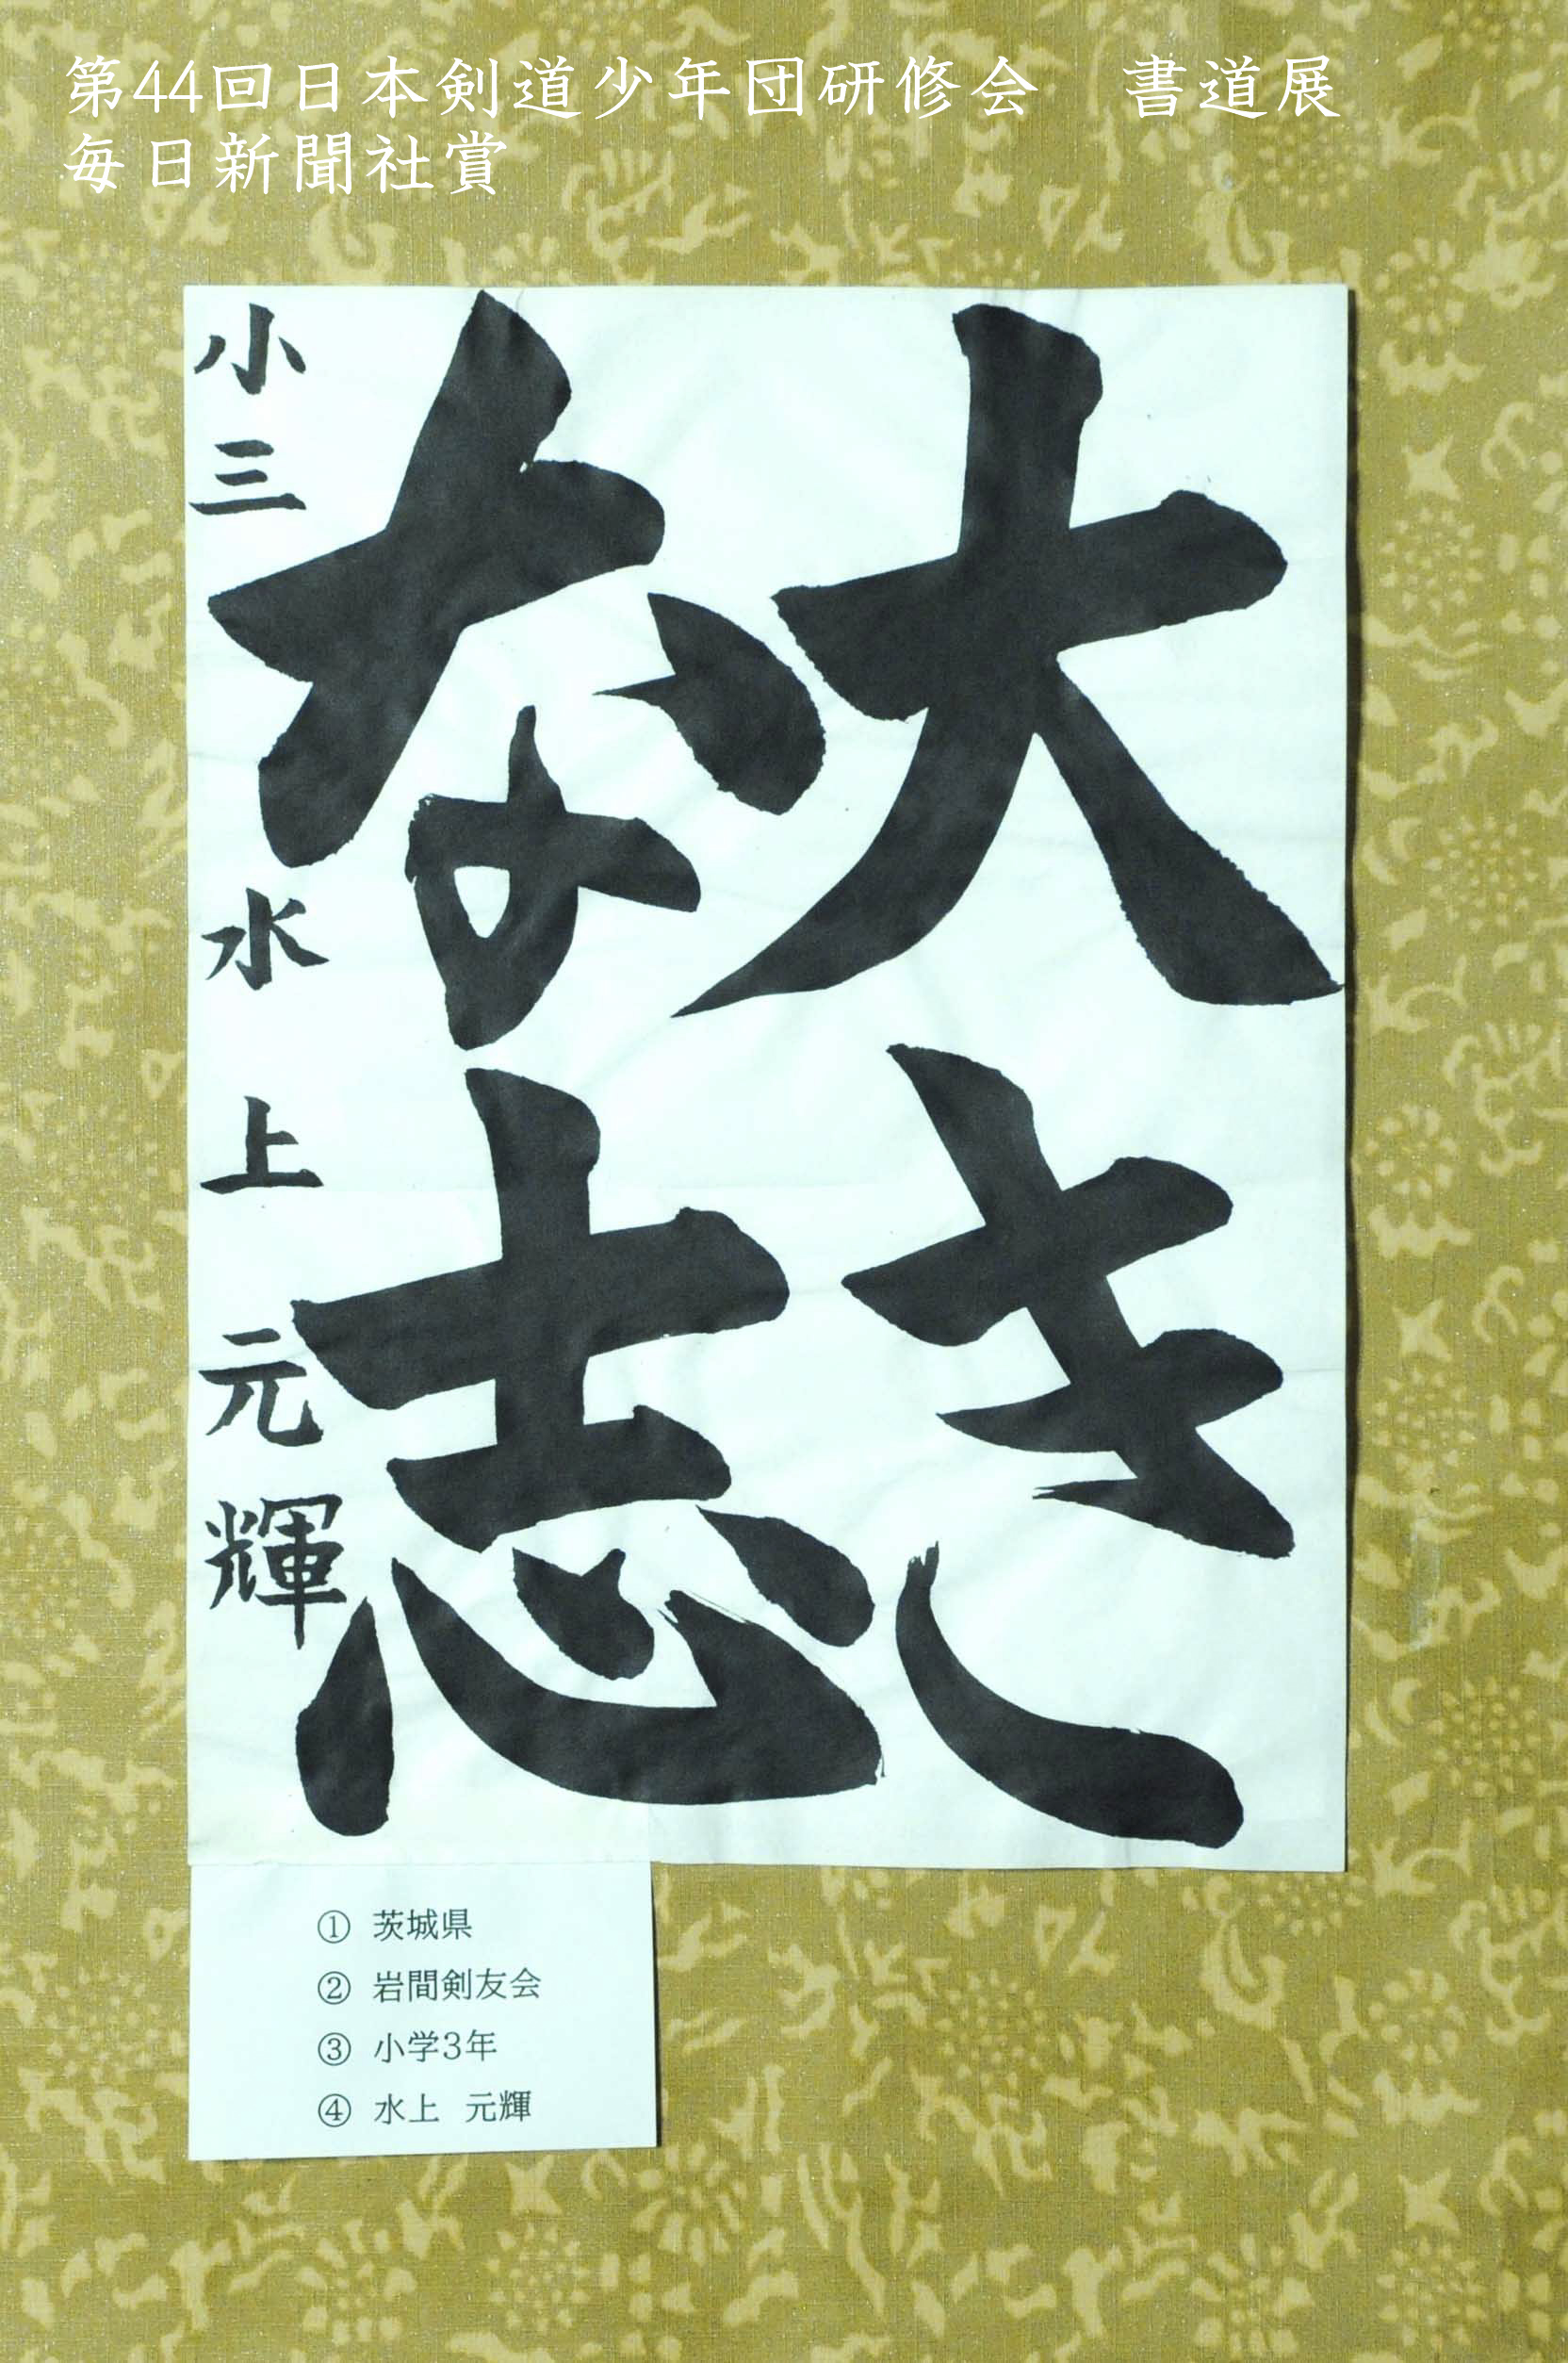 第44回日本剣道少年団研修会　書道展
毎日新聞社賞
大き
な志
小三 水上元輝
① 茨城県
② 岩間剣友会
③ 小学3年
④ 水上 元輝